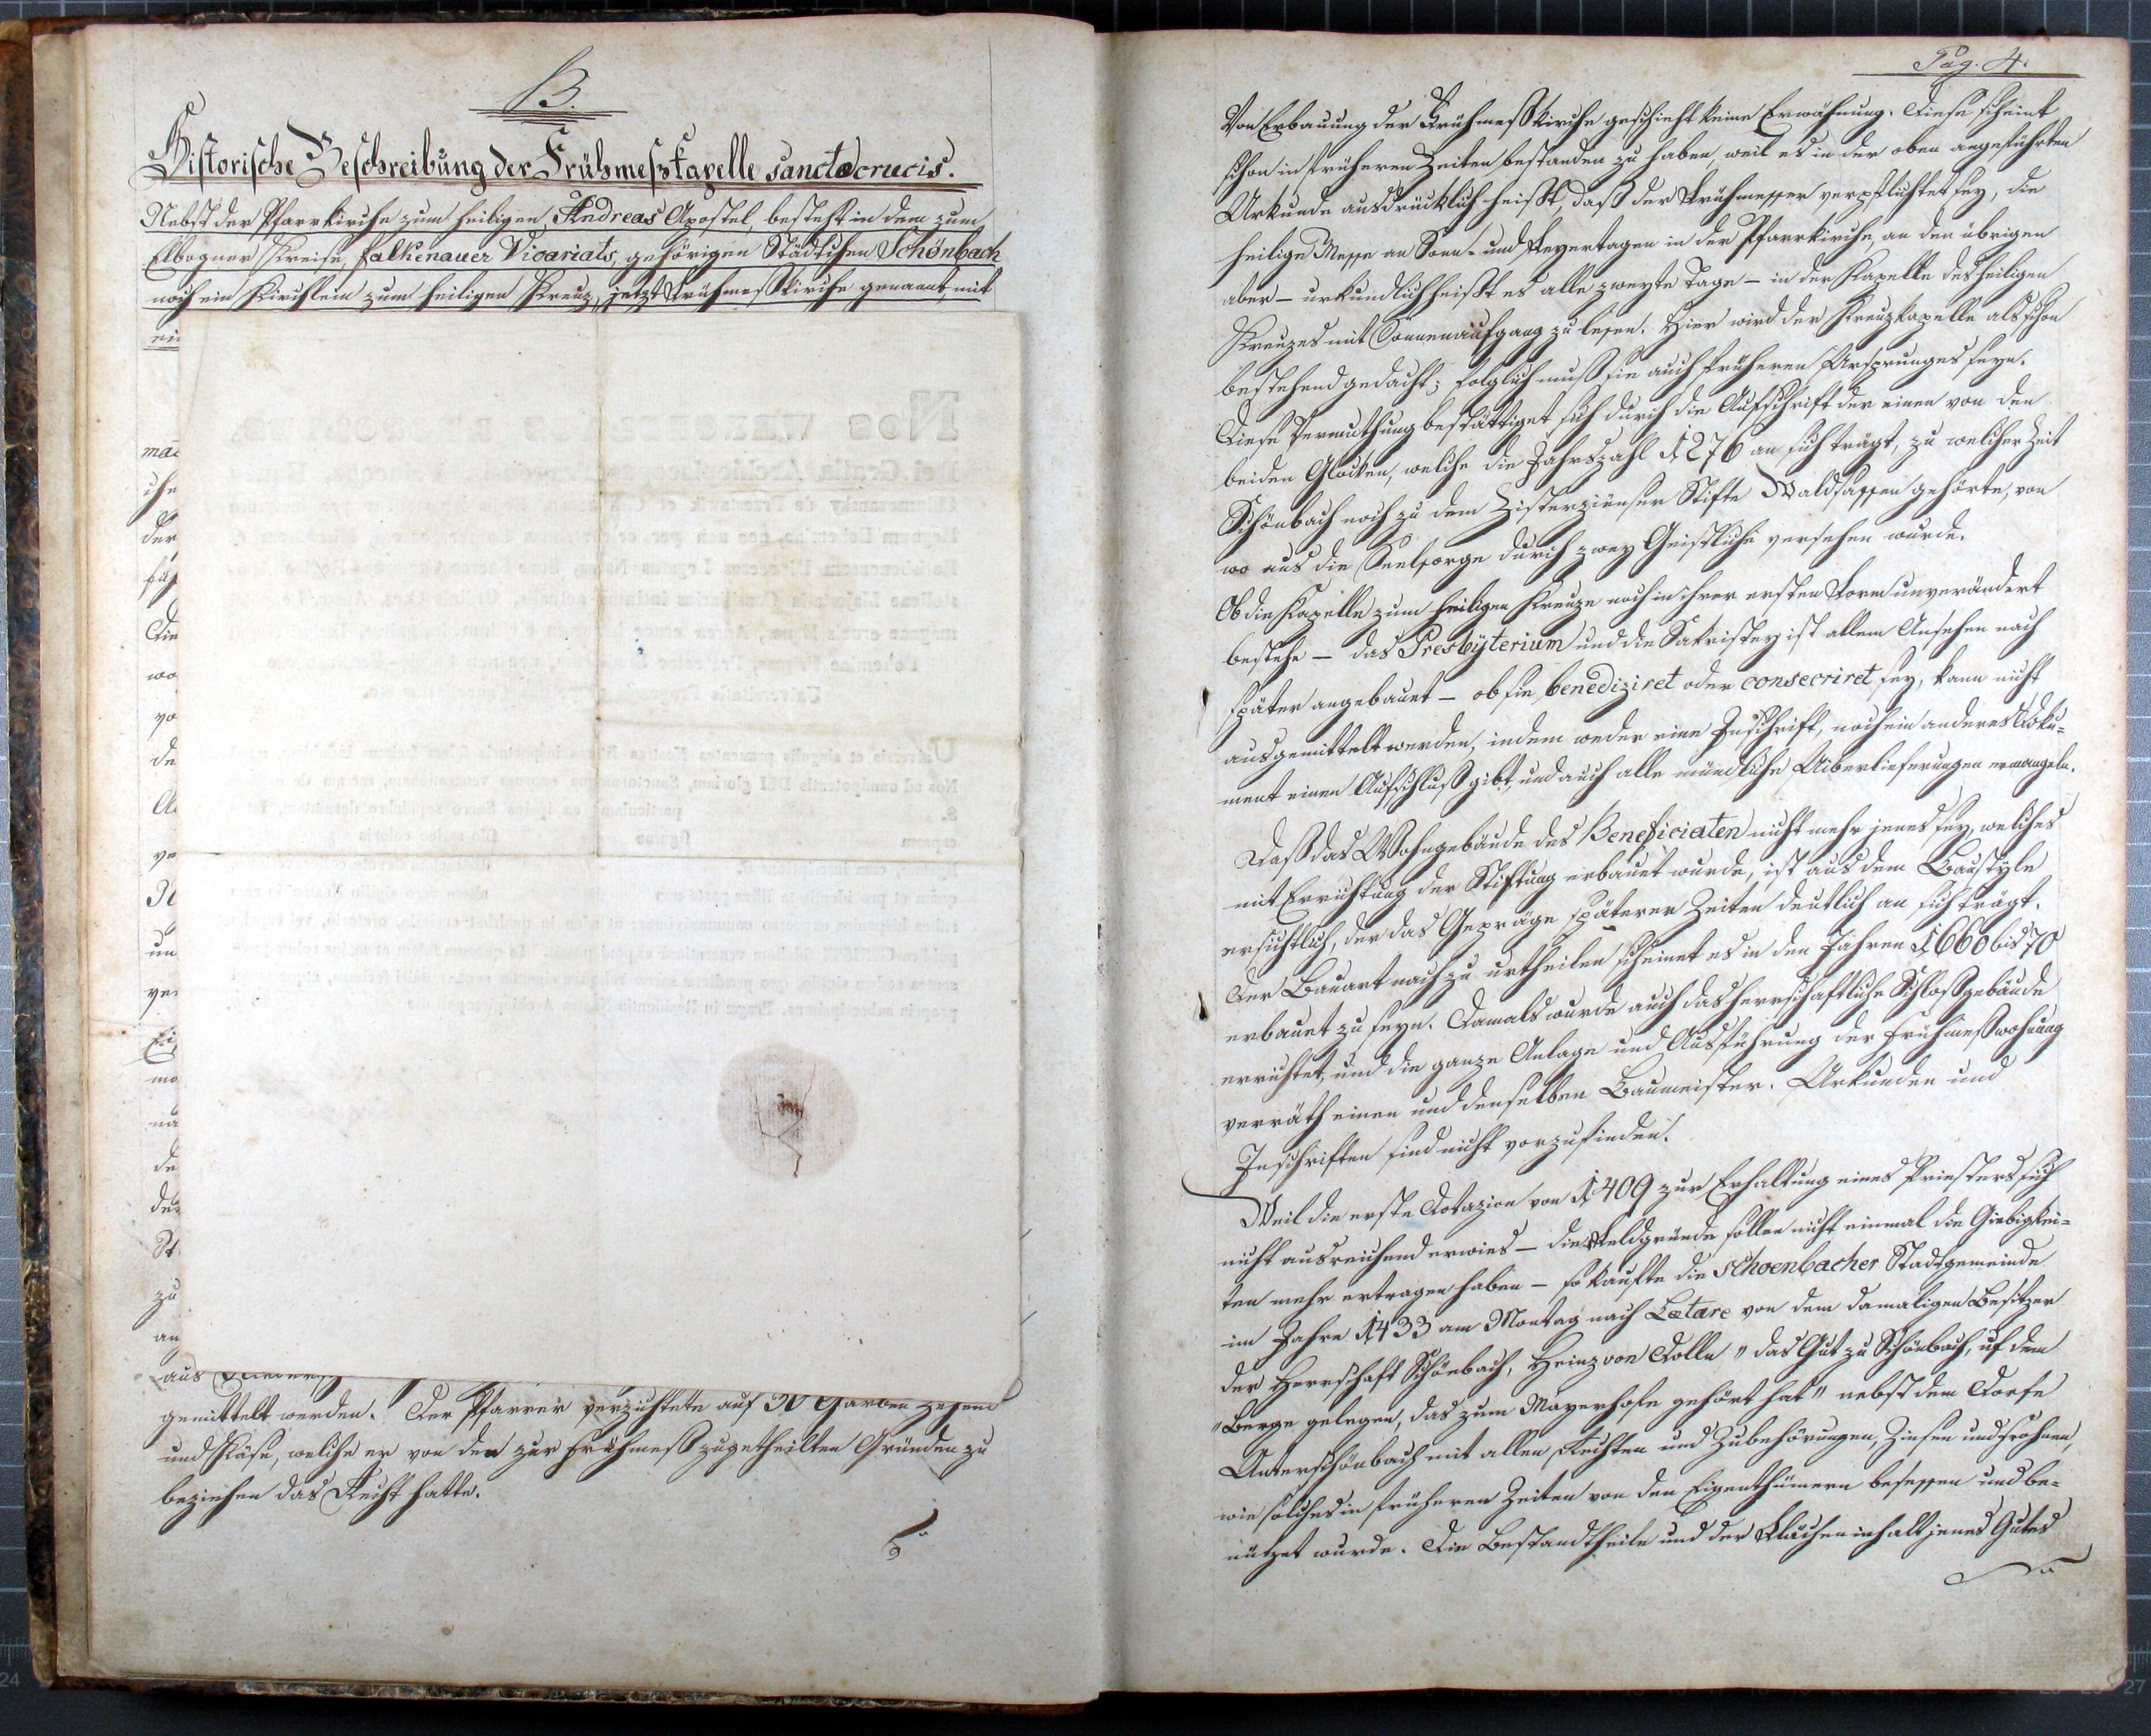 B.
Historische Beschreibung der Frühmeßkapelle sanctae crucis.
Nebst der Pfarrkirche zum heiligen Andreas Apostel, besteht in dem zum
Elbogner Kreise, Falkenauer Vicariats, gehörigen Städtchen Schönbach
noch ein Kirchlein zum heiligen Kreuz, jetzt Frühmeßkirche genannt, mit
aus
gemittelt werden. Der Pfarrer verzichtete auf 30 Garben Zehend
und Käse, welche er von den zur Frühmeß zugetheilten Gründen zu
beziehen das Recht hatte.
Pag. 4.
Von Erbauung der Frühmeßkirche geschieht keine Erwähnung. Diese scheint
schon in früheren Zeiten bestanden zu haben, weil es in der oben angeführten
Urkunde ausdrücklich heißt, daß der Frühmesser verpflichtet sey, die
heilige Messe an Sonn- und Feyertagen in der Pfarrkirche, an den übrigen
aber – urkundlich heißt es alle zweyte Tage – in der Kapelle des heiligen
Kreuzes mit Sonnenaufgang zu lesen. Hier wird der Kreuzkapelle als schon
bestehend gedacht; folglich muß sie auch früheren Ursprunges seyn.
Diese Vermuthung bestättiget sich durch die Aufschrift der einen von den
beiden Glocken, welche die Jahrszahl 1276 an sich trägt, zu welcher Zeit
Schönbach noch zu dem Zisterzienser Stifte Waldsassen gehörte, von
wo aus die Seelsorge durch zwey Geistliche versehen wurde.
Ob die Kapelle zum heiligen Kreuze noch in ihrer ersten Form unverändert
bestehe – das Presbyterium und die Sakristey ist allem Ansehen nach
später angebaut – ob sie benediziret oder consecriret sey, kann nicht
ausgemittelt werden, indem weder eine Inschrift, noch ein anderes Doku-
ment einen Aufschluß gibt, und auch alle mündliche Uiberlieferungen ermangeln.
Daß das Wohngebäude des Beneficiaten nicht mehr jenes sey, welches
mit Errichtung der Stiftung erbauet wurde, ist aus dem Baustyle
ersichtlich, der das Gepräge späterer Zeiten deutlich an sich trägt.
Der Bauart nach zu urtheilen scheinet es in den Jahren 1660 bis 70
erbauet zu seyn. Damals wurde auch das herrschaftliche Schloßgebäude
errichtet, und die ganze Anlage und Ausführung der Frühmeßwohnung
verräth einen und denselben Baumeister. Urkunden und
Inschriften sind nicht vorzufinden.
Weil die erste Dotazion von 1409 zur Erhaltung eines Priesters sich
nicht ausreichend erwies – die Feldgründe sollen nicht einmal die Giebigkei-
ten mehr ertragen haben – so kaufte die Schoenbacher Stadtgemeinde
im Jahre 1433 am Montag nach Lætare von dem damaligen Besitzer
der Herrschaft Schönbach, Heinz von Dolle „das Gut zu Schönbach, uf dem
„Berge gelegen, das zum Mayerhofe gehört hat" nebst dem Dorfe
Unterschönbach mit allen Rechten und Zubehörungen, Zinsen und Frohnen,
wie solches in früheren Zeiten von den Eigenthümern besessen und be-
nützet wurde. Die Bestandtheile und der Flächeninhalt jenes Gutes